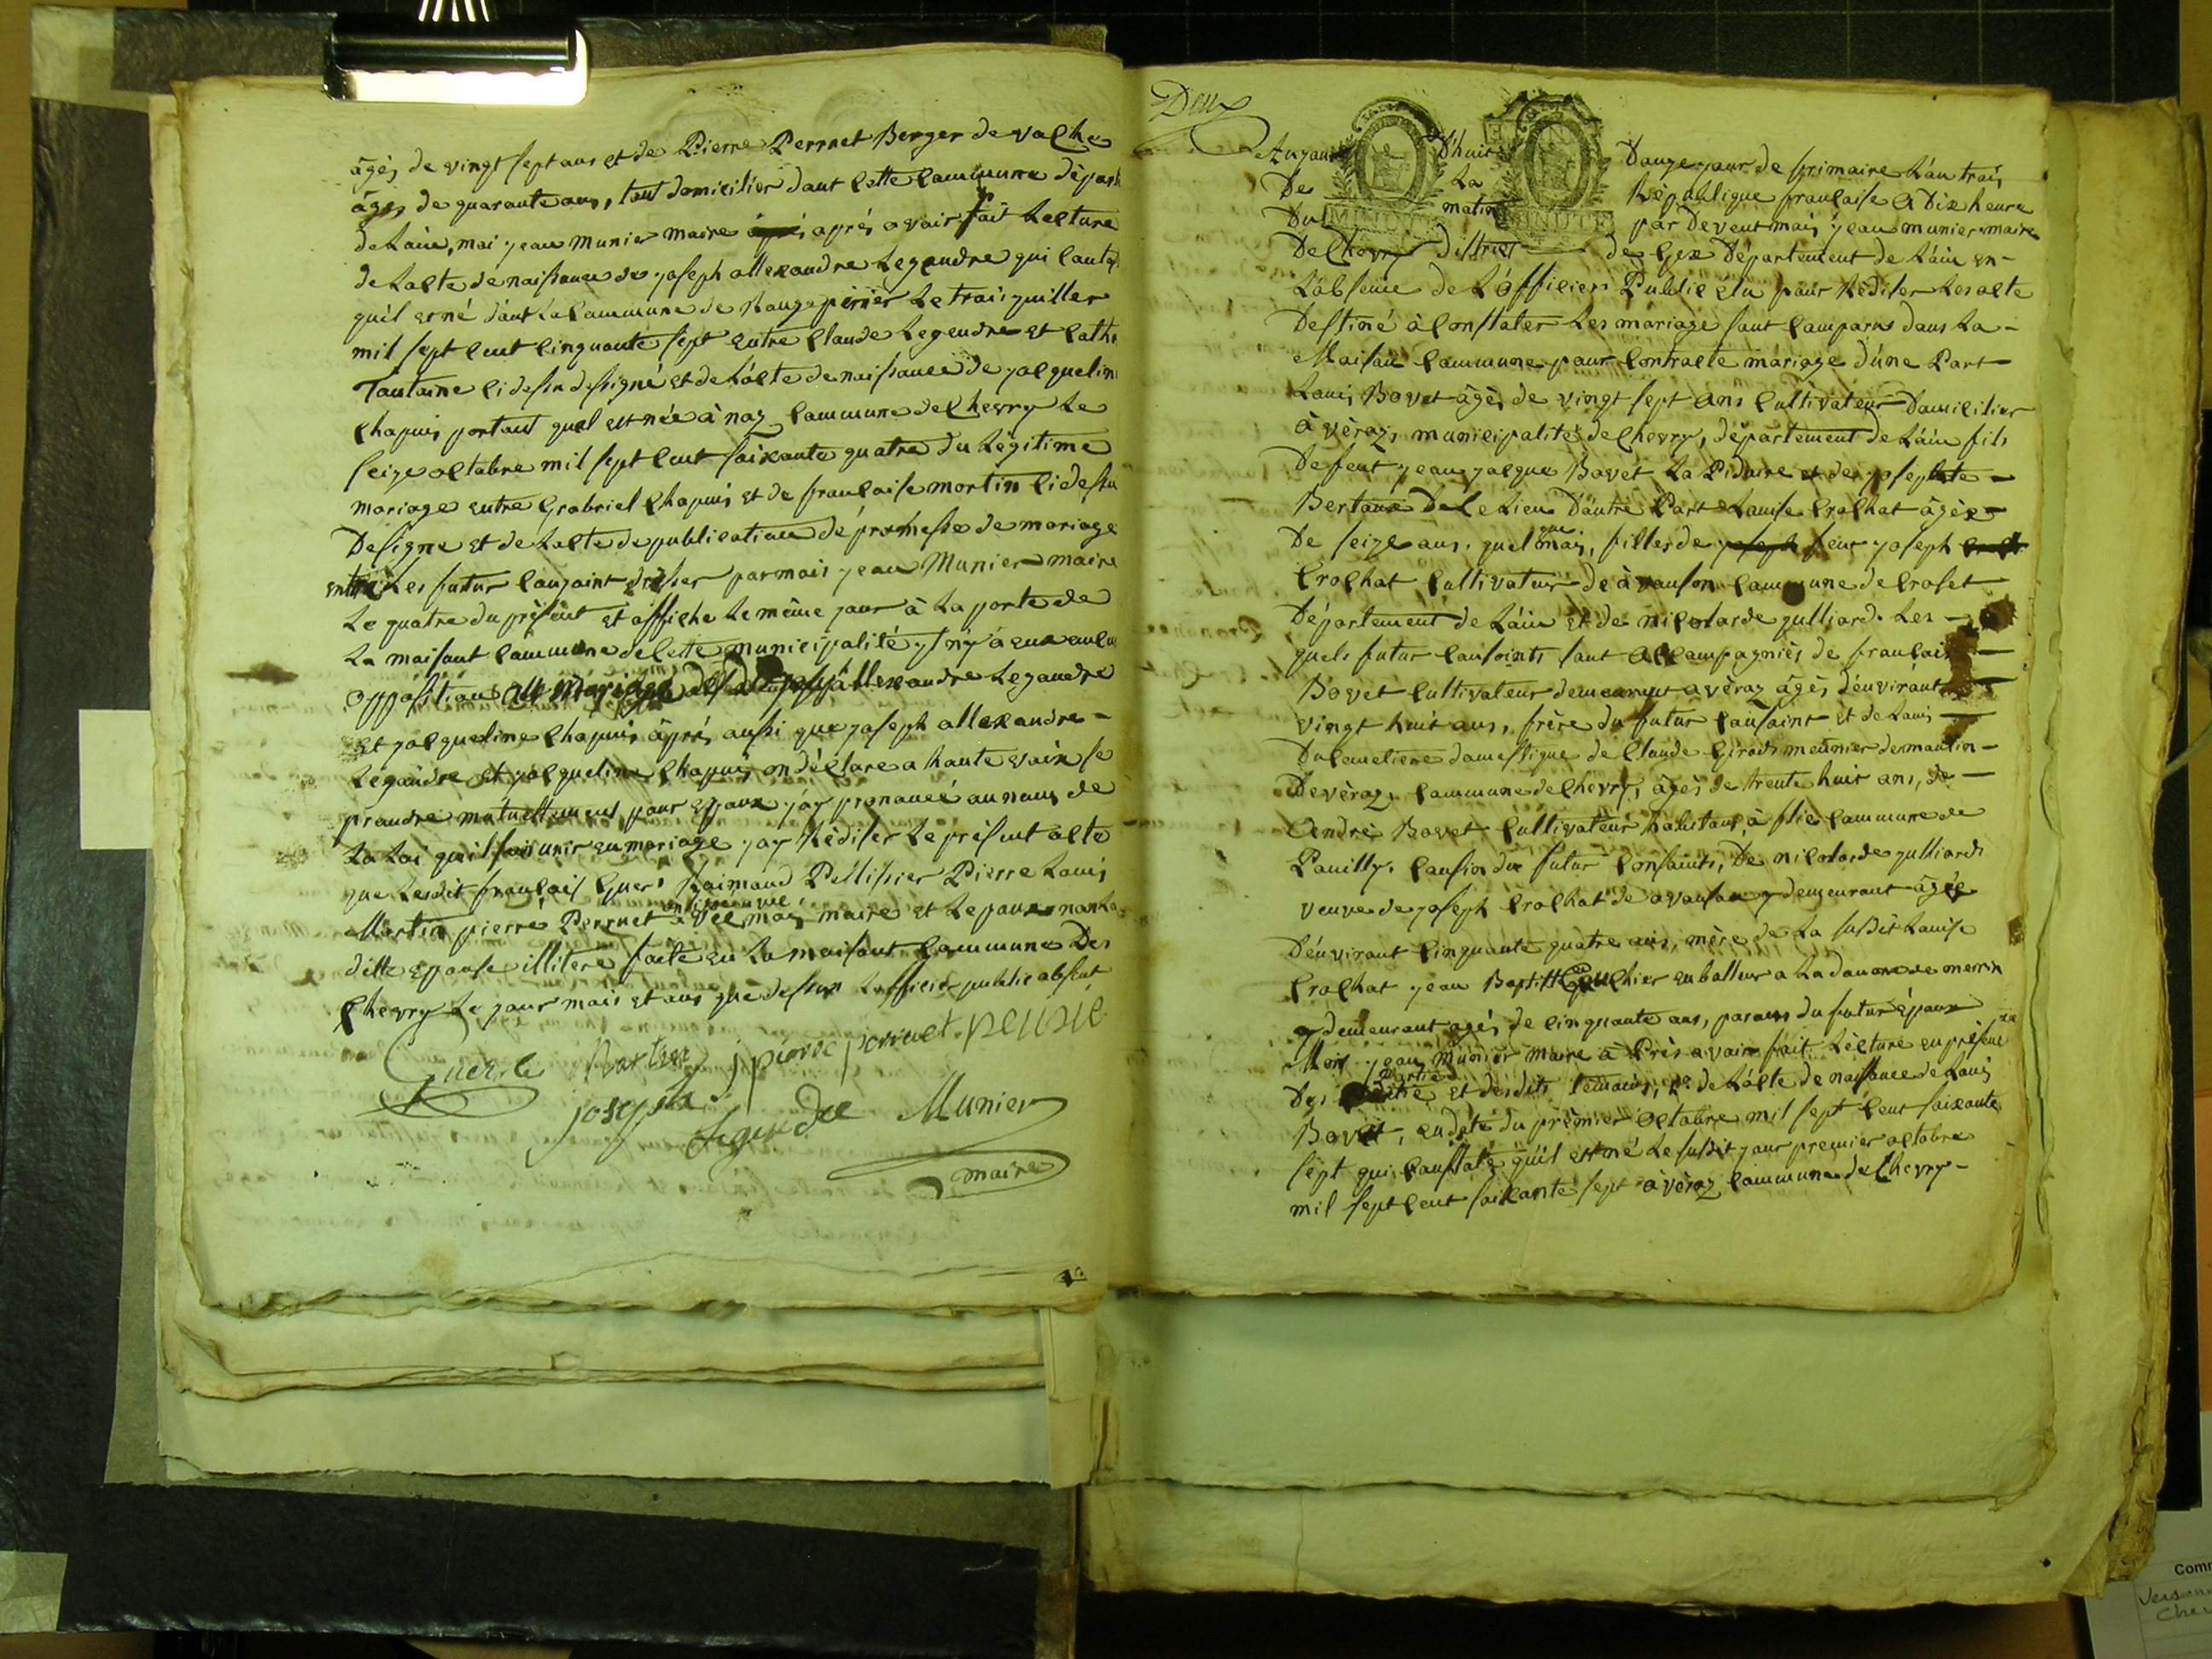 âgés de vingt sept ans et de Pierre Perrnet Berger de vache
âgés de quarante ans, tout domicilier dant cette commune départ
de Lain, moi jean munier maire après avoir fait Lecture
de Lacte de naissance de joseph allexandre Legendre qui
quil est né dant La Commune de Le trois juillet
mil sept cent cinquante sept entre Claude Legendre et Cath
Tantaine ci desu designé et de Lacte de naissance de jacqueline
Chapuis portant quel est née à naz commune de Chevry Le
seize octobre mil sept cent soixante quatre du Légitime
mariage entre Grabriel Chapuis et de francoise martin ci desu
Designe et de Lacte de publication de promesse de mariage
entre Les futur conjoint dresser par moi jean Munier maire
Le quatre du présent et affiche Le même jour à La porte de
La maisont commune de cette municipalité, il ny a eu aucune
opposition au mariage joseph allexandre Legendre
et jacqueline Chapuis âprés aussi que joseph allexandre -
Legendre et jacqueline Chapuis on déclare a haute voix se
prendre mutuellement pour epoux j'ay prononcé au nom de
La Loi quil son unir en mariage jay Rédiser Le présent acte
que Lesdit francois Guer Raimond Pellissier Pierre Louis
Martin pierre Perrnet avec moi maire et Lepoux non La
ditte epouse illitere faite en La maisont commune De
Chevry Le jour mois et ans que desur Lofficier public absent
Martin pierre perrnet
joseph Legendre Munier
maire
Deux
Aujour D'huit Douze jour de frimaire L'an trois
De La République francaise à Dix heure
Du matin par Devent moi jean munier maire
De Chevry District de Gex Département de Lain en -
L'absence de L'officier Public élu pour Rediser Les acte
Destiné à Constater Les mariage sont comparus dans La -
Maison commune pour Contracté mariage d'une Part -
Louis Bovet âgés de vingt sept Ans Cultivateur Domicilier
à vèraz, municipalité de Chevry, département de Lain fils
De feut jean jacque Bovet La Pidoure et de josephte -
Bertoux De Ce Lieu D'autre Part Louise Crochat âgée -
De seize ans, quelque mois, filles de joseph feut joseph
Crochat Cultivateur de à vauson commune de Croset
Département de Lain et de nicolarde julliard. Les -
quels futur conjoints sont accompagniés de francois -
Bovet Cultivateur demeurent a vèraz âgés d'environt -
vingt huit ans, frère du futur conjoint et de Louis -
Dulemeliere domestique de Claude Girods meunier de moulin -
De vèraz, commune de Chevry, âgés de trente huit ans, de -
André Bovet Cultivateur habitant à flie commune de
Pouilly. Cousin du futur conjoints, De nicolarde julliard
veuve de joseph Crochat de avauson y demeurant âgée
D'environt cinquante quatre ans, mère de La susdit Louise
Crochat jean Baptitte emballeur a La douane de meirin
y demeurant agés de cinquante ans, parans du futur époux
Moi jean Munier maire à Près avoir fait Lecture en présence
Des partie et desdits temoins, 1° de L'acte de naissance de Louis
Bovet, en date du premier octobre mil sept cent soixante
sept qui constate qu'il est né Le susdit jour premier octobre
mil sept cent soixante sept à vèraz commune de Chevry -